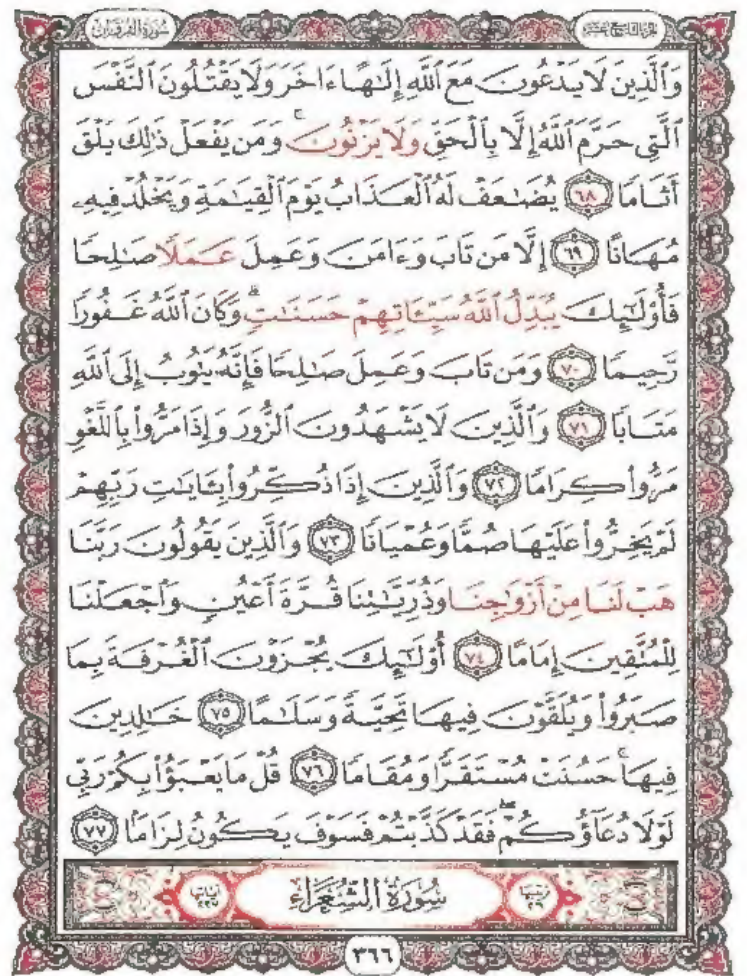 الجزء التاسع عشر
سورة الفرقان
وَٱلَّذِينَ لَا يَدْعُونَ مَعَ ٱللَّهِ إِلَـٰهًا ءَاخَرَ وَلَا يَقْتُلُونَ ٱلنَّفْسَ
ٱلَّتِى حَرَّمَ ٱللَّهُ إِلَّا بِٱلْحَقِّ وَلَا يَزْنُونَ ۚ وَمَن يَفْعَلْ ذَٰلِكَ يَلْقَ
أَثَامًا ٦٨ يُضَـٰعَفْ لَهُ ٱلْعَذَابُ يَوْمَ ٱلْقِيَـٰمَةِ وَيَخْلُدْ فِيهِۦ
مُهَانًا ٦٩ إِلَّا مَن تَابَ وَءَامَنَ وَعَمِلَ عَمَلًا صَـٰلِحًا
فَأُو۟لَـٰٓئِكَ يُبَدِّلُ ٱللَّهُ سَيِّـَٔاتِهِمْ حَسَنَـٰتٍ ۗ وَكَانَ ٱللَّهُ غَفُورًا
رَّحِيمًا ٧٠ وَمَن تَابَ وَعَمِلَ صَـٰلِحًا فَإِنَّهُۥ يَتُوبُ إِلَى ٱللَّهِ
مَتَابًا ٧١ وَٱلَّذِينَ لَا يَشْهَدُونَ ٱلزُّورَ وَإِذَا مَرُّوا۟ بِٱللَّغْوِ
مَرُّوا۟ كِرَامًا ٧٢ وَٱلَّذِينَ إِذَا ذُكِّرُوا۟ بِـَٔايَـٰتِ رَبِّهِمْ
لَمْ يَخِرُّوا۟ عَلَيْهَا صُمًّا وَعُمْيَانًا ٧٣ وَٱلَّذِينَ يَقُولُونَ رَبَّنَا
هَبْ لَنَا مِنْ أَزْوَٰجِنَا وَذُرِّيَّـٰتِنَا قُرَّةَ أَعْيُنٍ وَٱجْعَلْنَا
لِلْمُتَّقِينَ إِمَامًا ٧٤ أُو۟لَـٰٓئِكَ يُجْزَوْنَ ٱلْغُرْفَةَ بِمَا
صَبَرُوا۟ وَيُلَقَّوْنَ فِيهَا تَحِيَّةً وَسَلَـٰمًا ٧٥ خَـٰلِدِينَ
فِيهَا ۚ حَسُنَتْ مُسْتَقَرًّا وَمُقَامًا ٧٦ قُلْ مَا يَعْبَؤُا۟ بِكُمْ رَبِّى
لَوْلَا دُعَآؤُكُمْ ۖ فَقَدْ كَذَّبْتُمْ فَسَوْفَ يَكُونُ لِزَامًۢا ٧٧
ترتيبها ٢٦ سُورَةُ الشُّعَرَاءِ آياتها ٢٢٧
٣٦٦